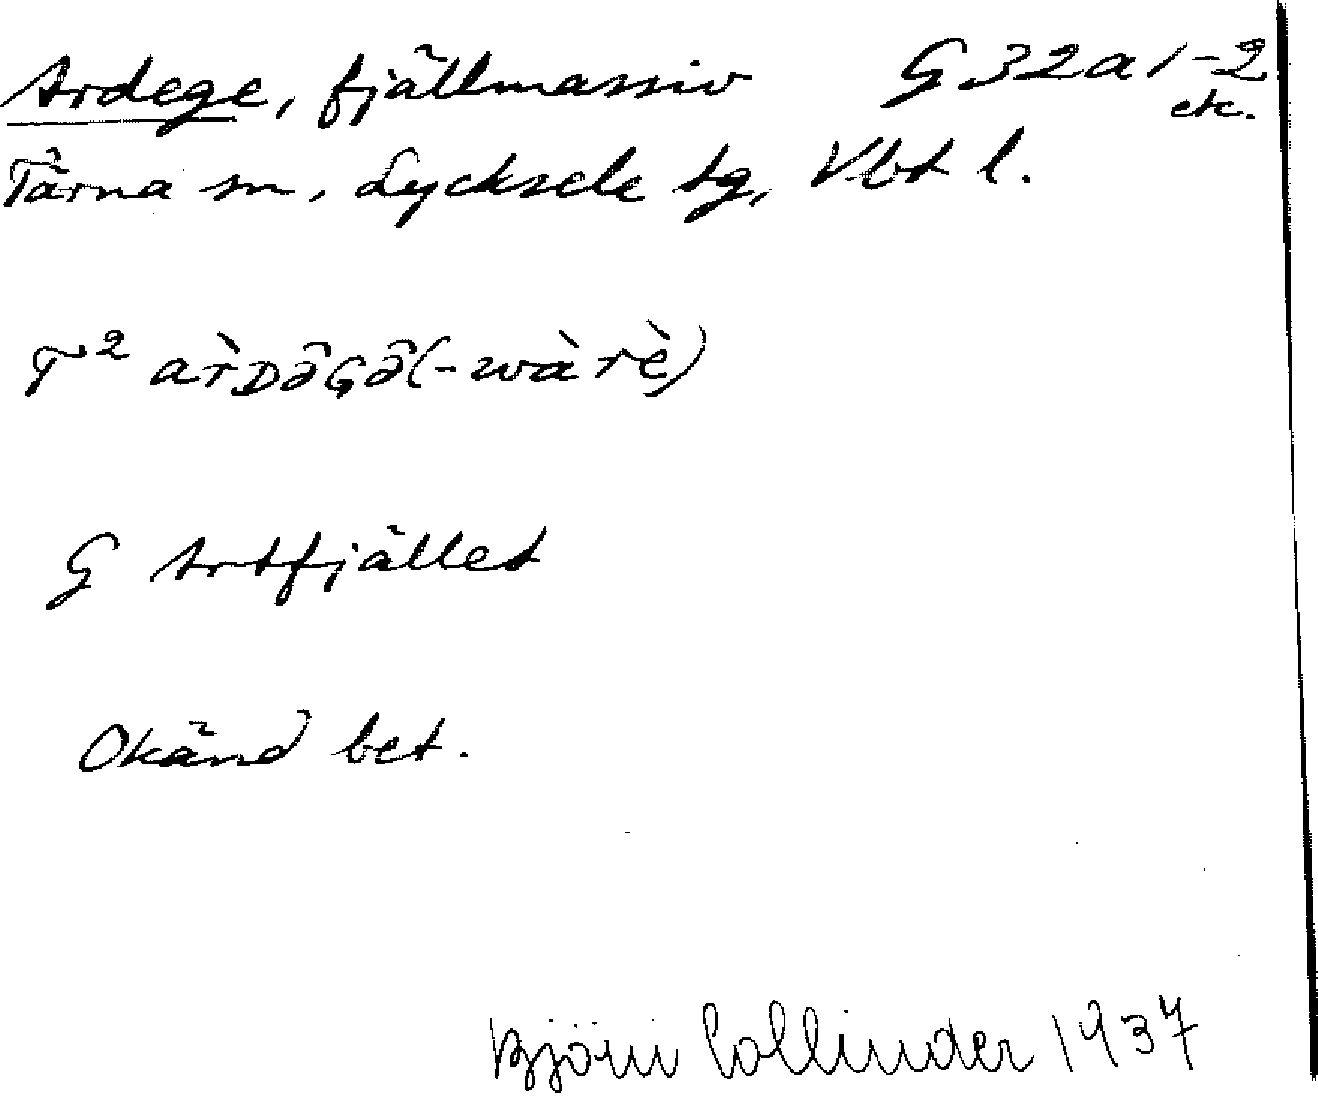 Ardege, fjällmassiv G 32a 1-2
etc.
Tärna sn, Lycksele tg, Vbt l.
T² ar̀Də̑Gə̑(-wàrè)
G Artfjället
Okänd bet.
Björn Collinder 1937